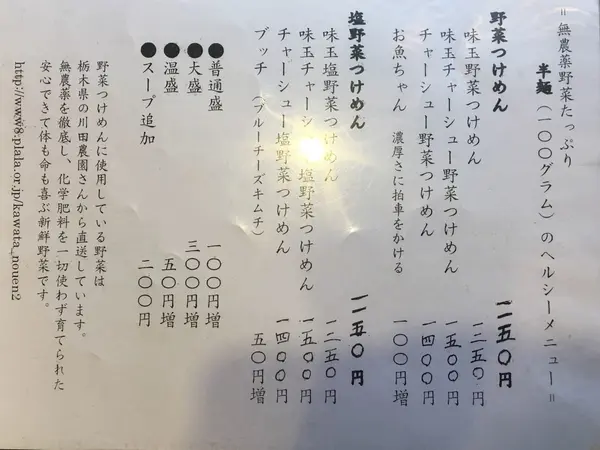 =無農薬野菜たっぷり
半麺(一〇〇グラム)のヘルシーメニュー=
野菜つけめん 一一五〇円
味玉野菜つけめん 一二五〇円
味玉チャーシュー野菜つけめん 一五〇〇円
チャーシュー野菜つけめん 一四〇〇円
お魚ちゃん 濃厚さに拍車をかける 一〇〇円増
塩野菜つけめん 一一五〇円
味玉塩野菜つけめん 一二五〇円
味玉チャーシュー塩野菜つけめん 一五〇〇円
チャーシュー塩野菜つけめん 一四〇〇円
ブッチ(ブルーチーズキムチ) 五〇円増
●普通盛 一〇〇円増
●大盛 三〇〇円増
●温盛 五〇円増
●スープ追加 二〇〇円
野菜つけめんに使用している野菜は
栃木県の川田農園さんから直送しています。
無農薬を徹底し、化学肥料を一切使わず育てられた
安心できて体も命も喜ぶ新鮮野菜です。
http://www8.plala.or.jp/kawata_nouen2